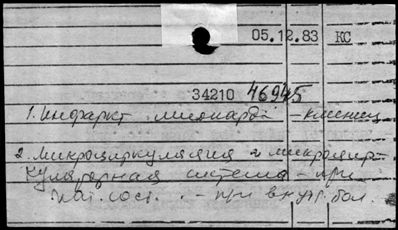 05.12.83 КС
34210 46945
1. Инфаркт миокарда - клиниц
2. Микроциркуляция и микроцир-
куляторная система - при
пат. сост. - при внутр. бол.